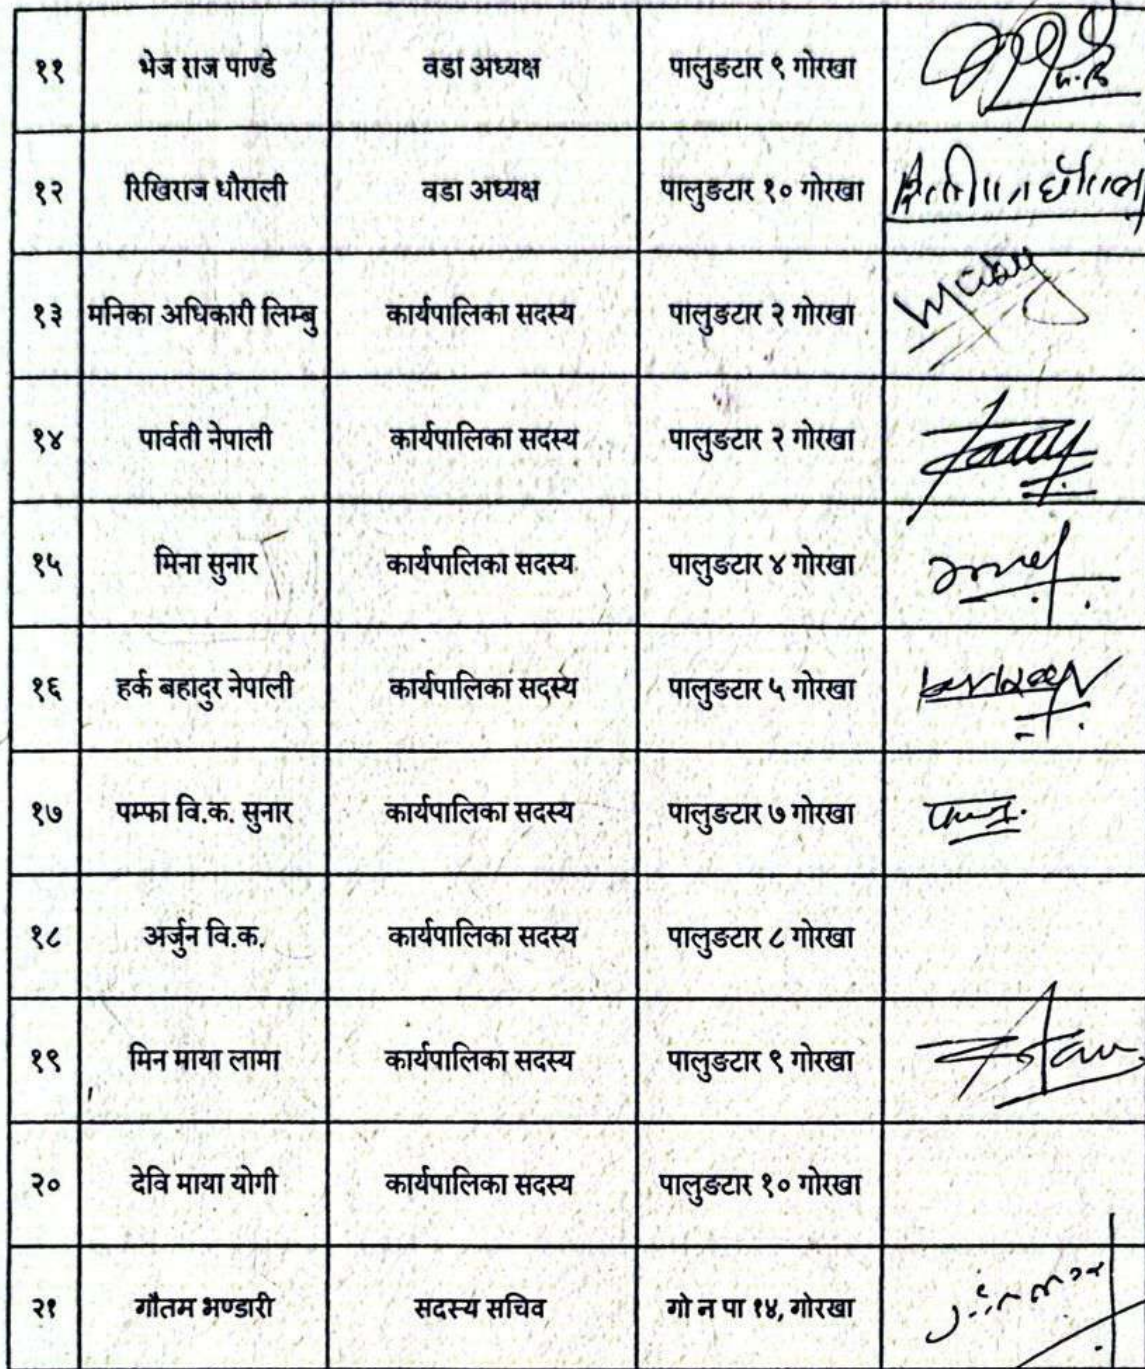 ११ भेज राज पाण्डे वडा अध्यक्ष पालुङटार ९ गोरखा
१२ रिखिराज धौराली वडा अध्यक्ष पालुङटार १० गोरखा
१३ मनिका अधिकारी लिम्बु कार्यपालिका सदस्य पालुङटार २ गोरखा
१४ पार्वती नेपाली कार्यपालिका सदस्य पालुङटार २ गोरखा
१५ मिना सुनार कार्यपालिका सदस्य पालुङटार ४ गोरखा
१६ हर्क बहादुर नेपाली कार्यपालिका सदस्य पालुङटार ५ गोरखा
१७ पम्फा वि.क. सुनार कार्यपालिका सदस्य पालुङटार ७ गोरखा
१८ अर्जुन वि.क. कार्यपालिका सदस्य पालुङटार ८ गोरखा
१९ मिन माया लामा कार्यपालिका सदस्य पालुङटार ९ गोरखा
२० देवि माया योगी कार्यपालिका सदस्य पालुङटार १० गोरखा
२१ गौतम भण्डारी सदस्य सचिव गो न पा १४, गोरखा